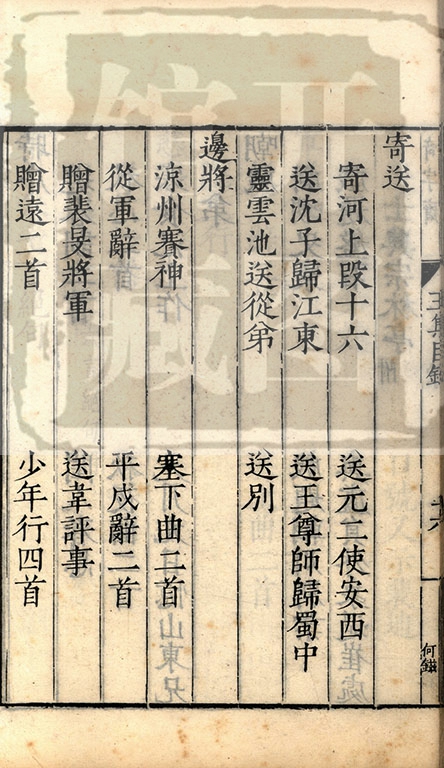 寄送
寄河上段十六　送元二使安西
送沈子歸江東　送王尊師歸蜀中
靈雲池送從弟　送別
邊將
涼州賽神　塞下曲二首
從軍辭　平戍辭二首
贈裴旻將軍　送韋評事
贈遠二首　少年行四首